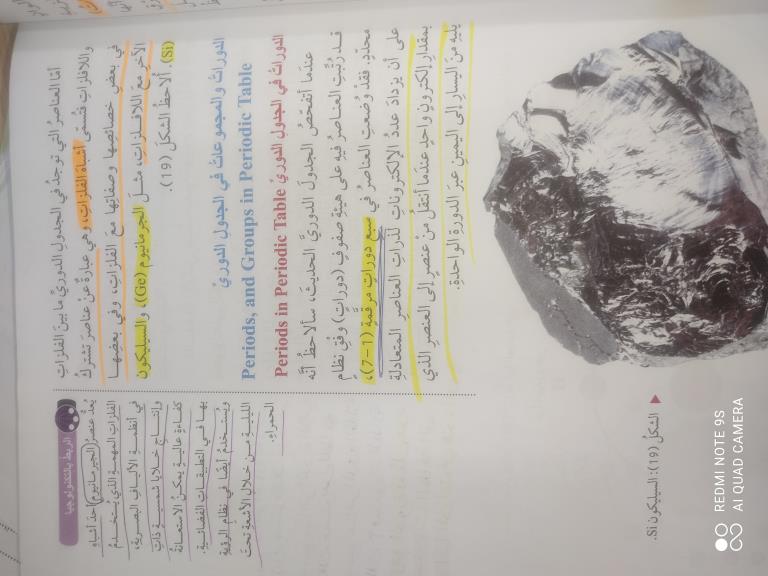 أمّا العناصرُ التي توجدُ في الجدولِ الدوريِّ ما بينَ الفلزّاتِ
واللافلزّاتِ فتُسمّى أشباهَ الفلزّاتِ، وهي عبارةٌ عنْ عناصرَ تشتركُ
في بعضِ خصائصِها وصفاتِها معَ الفلزّاتِ، وفي بعضِها
الآخرِ معَ اللافلزّاتِ، مثلَ الجرمانيومِ (Ge)، والسيليكونِ
(Si). ألاحظُ الشكلَ (19).
الدوراتُ والمجموعاتُ في الجدولِ الدوريِّ
Periods, and Groups in Periodic Table
الدوراتُ في الجدولِ الدوريِّ Periods in Periodic Table
عندما أتفحّصُ الجدولَ الدوريَّ الحديثَ، سألاحظُ أنّه
قدْ رُتّبتِ العناصرُ فيهِ على هيئةِ صفوفٍ (دوراتٍ) وفقِ نظامٍ
محدّدٍ. فقدْ وُضعتِ العناصرُ في سبعِ دوراتٍ مرقّمةٍ (1-7)،
على أن يزدادَ عددُ الإلكتروناتِ لذرّاتِ العناصرِ المتعادلةِ
بمقدارِ إلكترونٍ واحدٍ عندما أنتقلُ منْ عنصرٍ إلى العنصرِ الذي
يليهِ منَ اليسارِ إلى اليمينِ عبرَ الدورةِ الواحدةِ.
الربط بالتكنولوجيا
يُعدُّ عنصرُ (الجرمانيومِ) أحدَ أشباهِ
الفلزّاتِ المهمةِ الذي يُستخدمُ
في أنظمةِ الأليافِ البصريةِ،
وإنتاجِ خلايا شمسيةٍ ذاتِ
كفاءةٍ عاليةٍ يمكنُ الاستعانةُ
بها في التطبيقاتِ الفضائيةِ.
ويُستخدمُ أيضًا في نظامِ الرؤيةِ
الليليةِ منْ خلالِ الأشعةِ تحتَ
الحمراءِ.
الشكلُ (19): السيليكون Si.
REDMI NOTE 9S
AI QUAD CAMERA